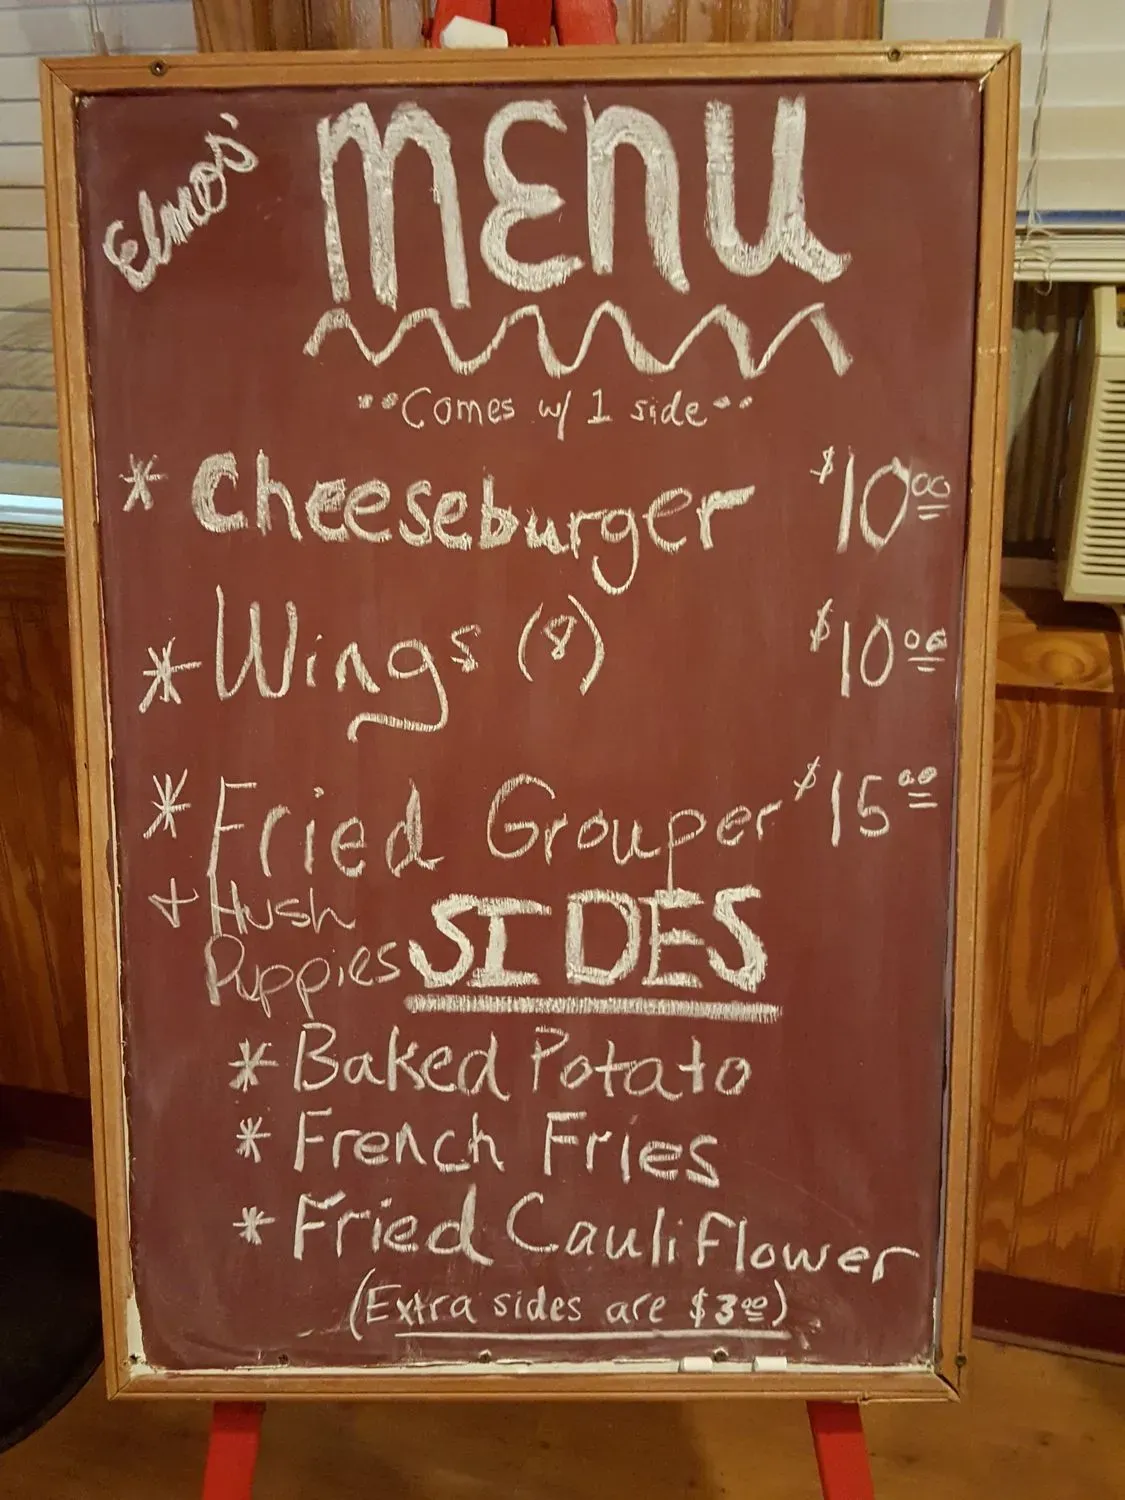 Elmo's'
MENU
**Comes w/ 1 side**
* Cheeseburger $10.00
* Wings (8) $10.00
* Fried Grouper $15.00
+ Hush
Puppies
SIDES
* Baked Potato
* French Fries
* Fried Cauliflower
(Extra sides are $3.00)